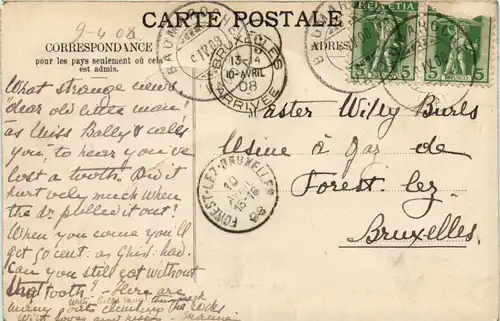 CARTE POSTALE
9-4 08.
CORRESPONDANCE
pour les pays seulement où cela
est admis.
ADRES
HELVETIA
5
5
BRUXELLES
13-14
10-AVRIL
08
ARRIVÉE
FOREST-LEZ-BRUXELLES
10
AVRIL
08
Master Wily Burls
Usine à Gaz de
Forest lez
Bruxelles
What strange news
"dear old little man",
as Miss Bolly calls
you, to hear you've
lost a tooth. Did it
hurt very much when
the dr. pulled it out?
When you come you'll
get 50 cent. as Ghist. had.
Can you still eat without
that tooth? - Here are
many goats climbing the rocks
With love and kisses -